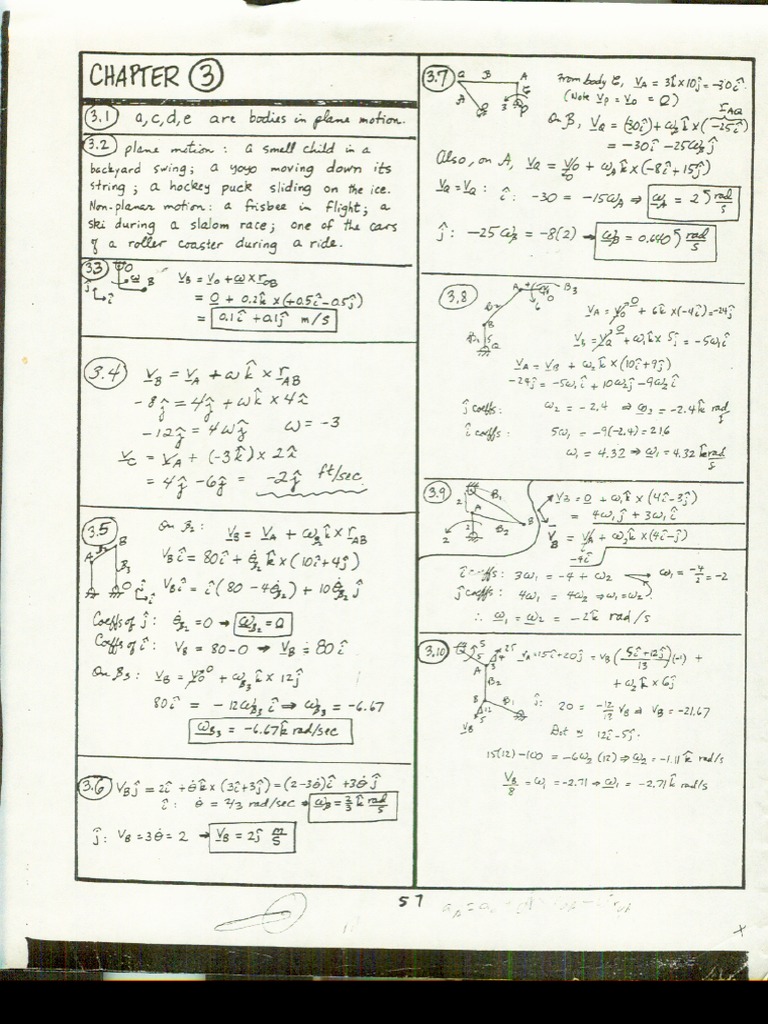 CHAPTER 3
3.1 a,c,d,e are bodies in plane motion.
3.2 plane motion : a small child in a
backyard swing ; a yoyo moving down its
string ; a hockey puck sliding on the ice.
Non-planar motion : a frisbee in flight ; a
ski during a slalom race ; one of the cars
of a roller coaster during a ride.
3.3 O ω B ĵ î V_B = V_O + ω × r_OB
= 0 + 0.2k̂ × (+0.5î - 0.5ĵ)
= 0.1î + 0.1ĵ m/s
3.4 V_B = V_A + ωk̂ × r_AB
-8ĵ = 4ĵ + ωk̂ × 4î
-12ĵ = 4ωĵ ω = -3
V_C = V_A + (-3k̂) × 2î
= 4ĵ - 6ĵ = -2ĵ ft/sec
3.5 On B₂: V_B = V_A + ω_B₂ k̂ × r_AB
A B B₂ B₃ O ĵ î
V_B î = 80î + θ̇_B₂ k̂ × (10î + 4ĵ)
V_B î = î(80 - 4θ̇_B₂) + 10θ̇_B₂ ĵ
Coeffs of ĵ : θ̇_B₂ = 0 → ω_B₂ = 0
Coeffs of î : V_B = 80 - 0 → V_B = 80î
On B₃ : V_B = V_O + ω_B₃ k̂ × 12ĵ
80î = -12ω_B₃ î ⇒ ω_B₃ = -6.67
ω_B₃ = -6.67k̂ rad/sec
3.6 V_B ĵ = 2î + θ̇k̂ × (3î + 3ĵ) = (2-3θ̇)î + 3θ̇ĵ
î : θ̇ = 2/3 rad/sec ⇒ ω_B = 2/3 k̂ rad/s
ĵ : V_B = 3θ̇ = 2 → V_B = 2ĵ m/s
3.7 Q B A From body C, V_A = 3k̂ × 10ĵ = -30î
(Note V_P = V_O = 0)
On B, V_Q = (-30î) + ω_B k̂ × (-25î) r_AQ
= -30î - 25ω_B ĵ
Also, on A, V_Q = V_O + ω_A k̂ × (-8î + 15ĵ)
V_Q = V_Q : î : -30 = -15ω_A ⇒ ω_A = 2 rad/s
ĵ : -25ω_B = -8(2) → ω_B = 0.640 rad/s
3.8 A B₃ V_A = V_O + 6k̂ × (-4î) = -24ĵ
B Q V_B = V_Q + ω₁k̂ × 5ĵ = -5ω₁î
V_A = V_B + ω₂k̂ × (10î + 9ĵ)
-24ĵ = -5ω₁î + 10ω₂ĵ - 9ω₂î
ĵ coeffs : ω₂ = -2.4 ⇒ ω₂ = -2.4k̂ rad/s
î coeffs : 5ω₁ = -9(-2.4) = 21.6
ω₁ = 4.32 ⇒ ω₁ = 4.32k̂ rad/s
3.9 B₁ 2 A B₂ B 2 V_B = 0 + ω₁k̂ × (4î - 3ĵ)
= 4ω₁ĵ + 3ω₁î
V_B = V_A + ω₂k̂ × (4î - ĵ)
-4î
î coeffs : 3ω₁ = -4 + ω₂ ω₁ = -4/2 = -2
ĵ coeffs : 4ω₁ = 4ω₂ ⇒ ω₁ = ω₂
∴ ω₁ = ω₂ = -2k̂ rad/s
3.10 5 25 4 3 A V_A = 15î + 20ĵ = V_B (5î + 12ĵ / 13)(-1) +
B₂ + ω₂k̂ × 6ĵ
B B₁ 12 5 V_B ĵ : 20 = -12/13 V_B ⇒ V_B = -21.67
Dot w 12î - 5ĵ :
15(12) - 100 = -6ω₂(12) ⇒ ω₂ = -1.11k̂ rad/s
V_B/8 = ω₁ = -2.71 ⇒ ω₁ = -2.71k̂ rad/s
57